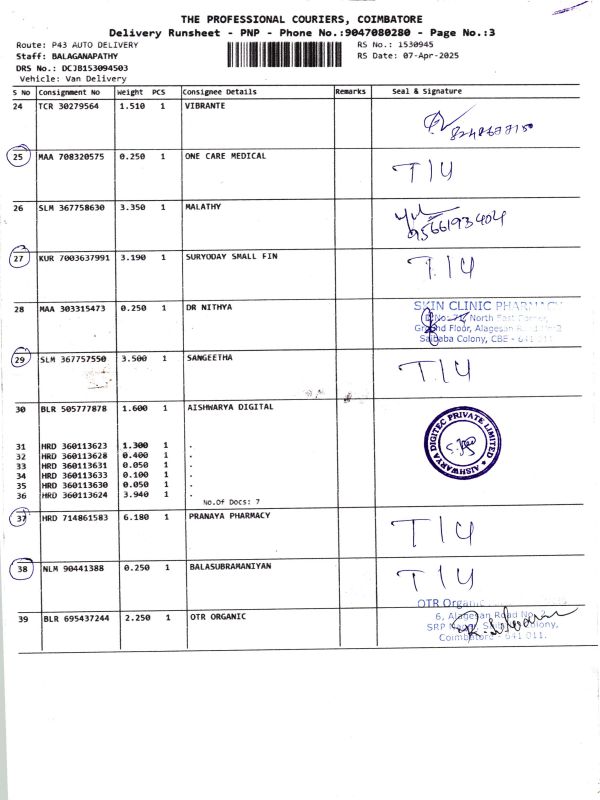 THE PROFESSIONAL COURIERS, COIMBATORE
Delivery Runsheet - PNP - Phone No.:9047080280 - Page No.:3
Route: P43 AUTO DELIVERY
RS No.: 1530945
Staff: BALAGANAPATHY
RS Date: 07-Apr-2025
DRS No.: DCJB153094503
Vehicle: Van Delivery
S No Consignment No Weight PCS Consignee Details Remarks Seal & Signature
24 TCR 30279564 1.510 1 VIBRANTE
25 MAA 708320575 0.250 1 ONE CARE MEDICAL T/4
26 SLM 367758630 3.350 1 MALATHY
9566193404
27 KUR 7003637991 3.190 1 SURYODAY SMALL FIN T/4
28 MAA 303315473 0.250 1 DR NITHYA
SKIN CLINIC PHARMACY
North East Corner,
Ground Floor, Alagesan
Saibaba Colony, CBE - 641 011
29 SLM 367757550 3.500 1 SANGEETHA T/4
30 BLR 505777878 1.600 1 AISHWARYA DIGITAL
AISHWARYA DIGITEC PRIVATE LIMITED
31 HRD 360113623 1.300 1 .
32 HRD 360113628 0.400 1 .
33 HRD 360113631 0.050 1 .
34 HRD 360113633 0.100 1 .
35 HRD 360113630 0.050 1 .
36 HRD 360113624 3.940 1 .
No.Of Docs: 7
37 HRD 714861583 6.180 1 PRANAYA PHARMACY T/4
38 NLM 90441388 0.250 1 BALASUBRAMANIYAN T/4
39 BLR 695437244 2.250 1 OTR ORGANIC
OTR Organic
6, Alagesan Road No. 2
SRP Nagar, Saibaba Colony,
Coimbatore - 641 011.